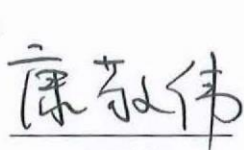 康敬伟